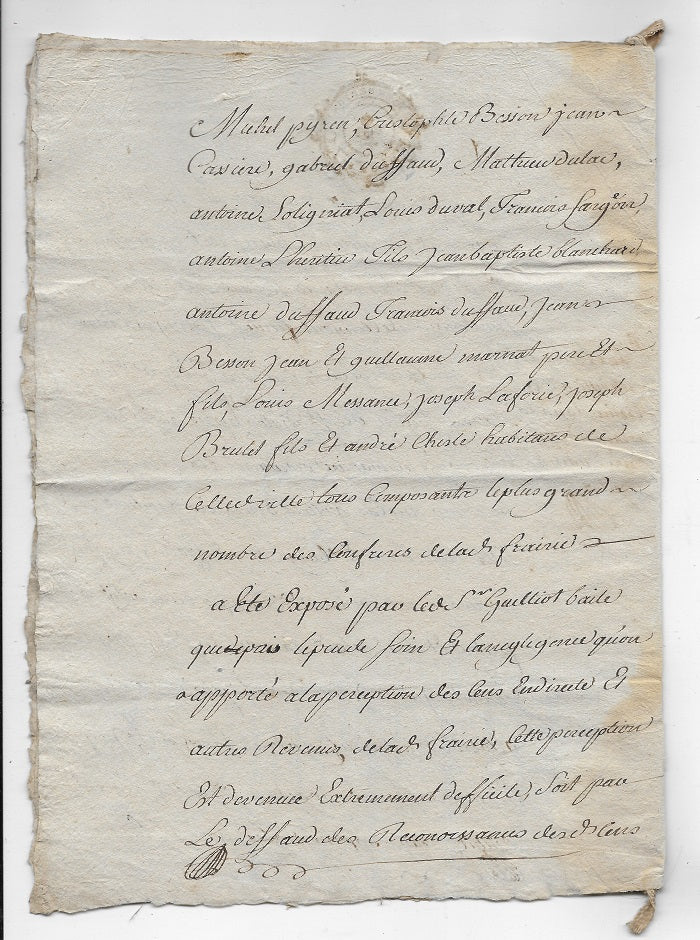 Michel pyren, Cristophle Besson jean
Cassiere, gabriel duffaud, Mathieu dulac,
antoine Solignat, Louis duval, Francois Sargoin,
antoine Lheritier Fils Jean baptiste blanchard
antoine duffaud Francois duffaud, jean
Besson jean Et guillaume marnat pere Et
fils, Louis Messance, joseph Laforie, joseph
Brulet fils Et andré Cheste habitans de
Celled. ville tous Composants le plus grand
nombre des Confreres de lad. frairie
a Eté Exposé par led. Sr. Guilliot baile
que depuis le peu de soin Et la negligence qu'on
apporté a la perception des Cens En directe Et
autres Revenus de lad. frairie, Cette perception
Est devenue Extremement defficile, Soit par
Le deffaud des Reconoissances desd. Cens